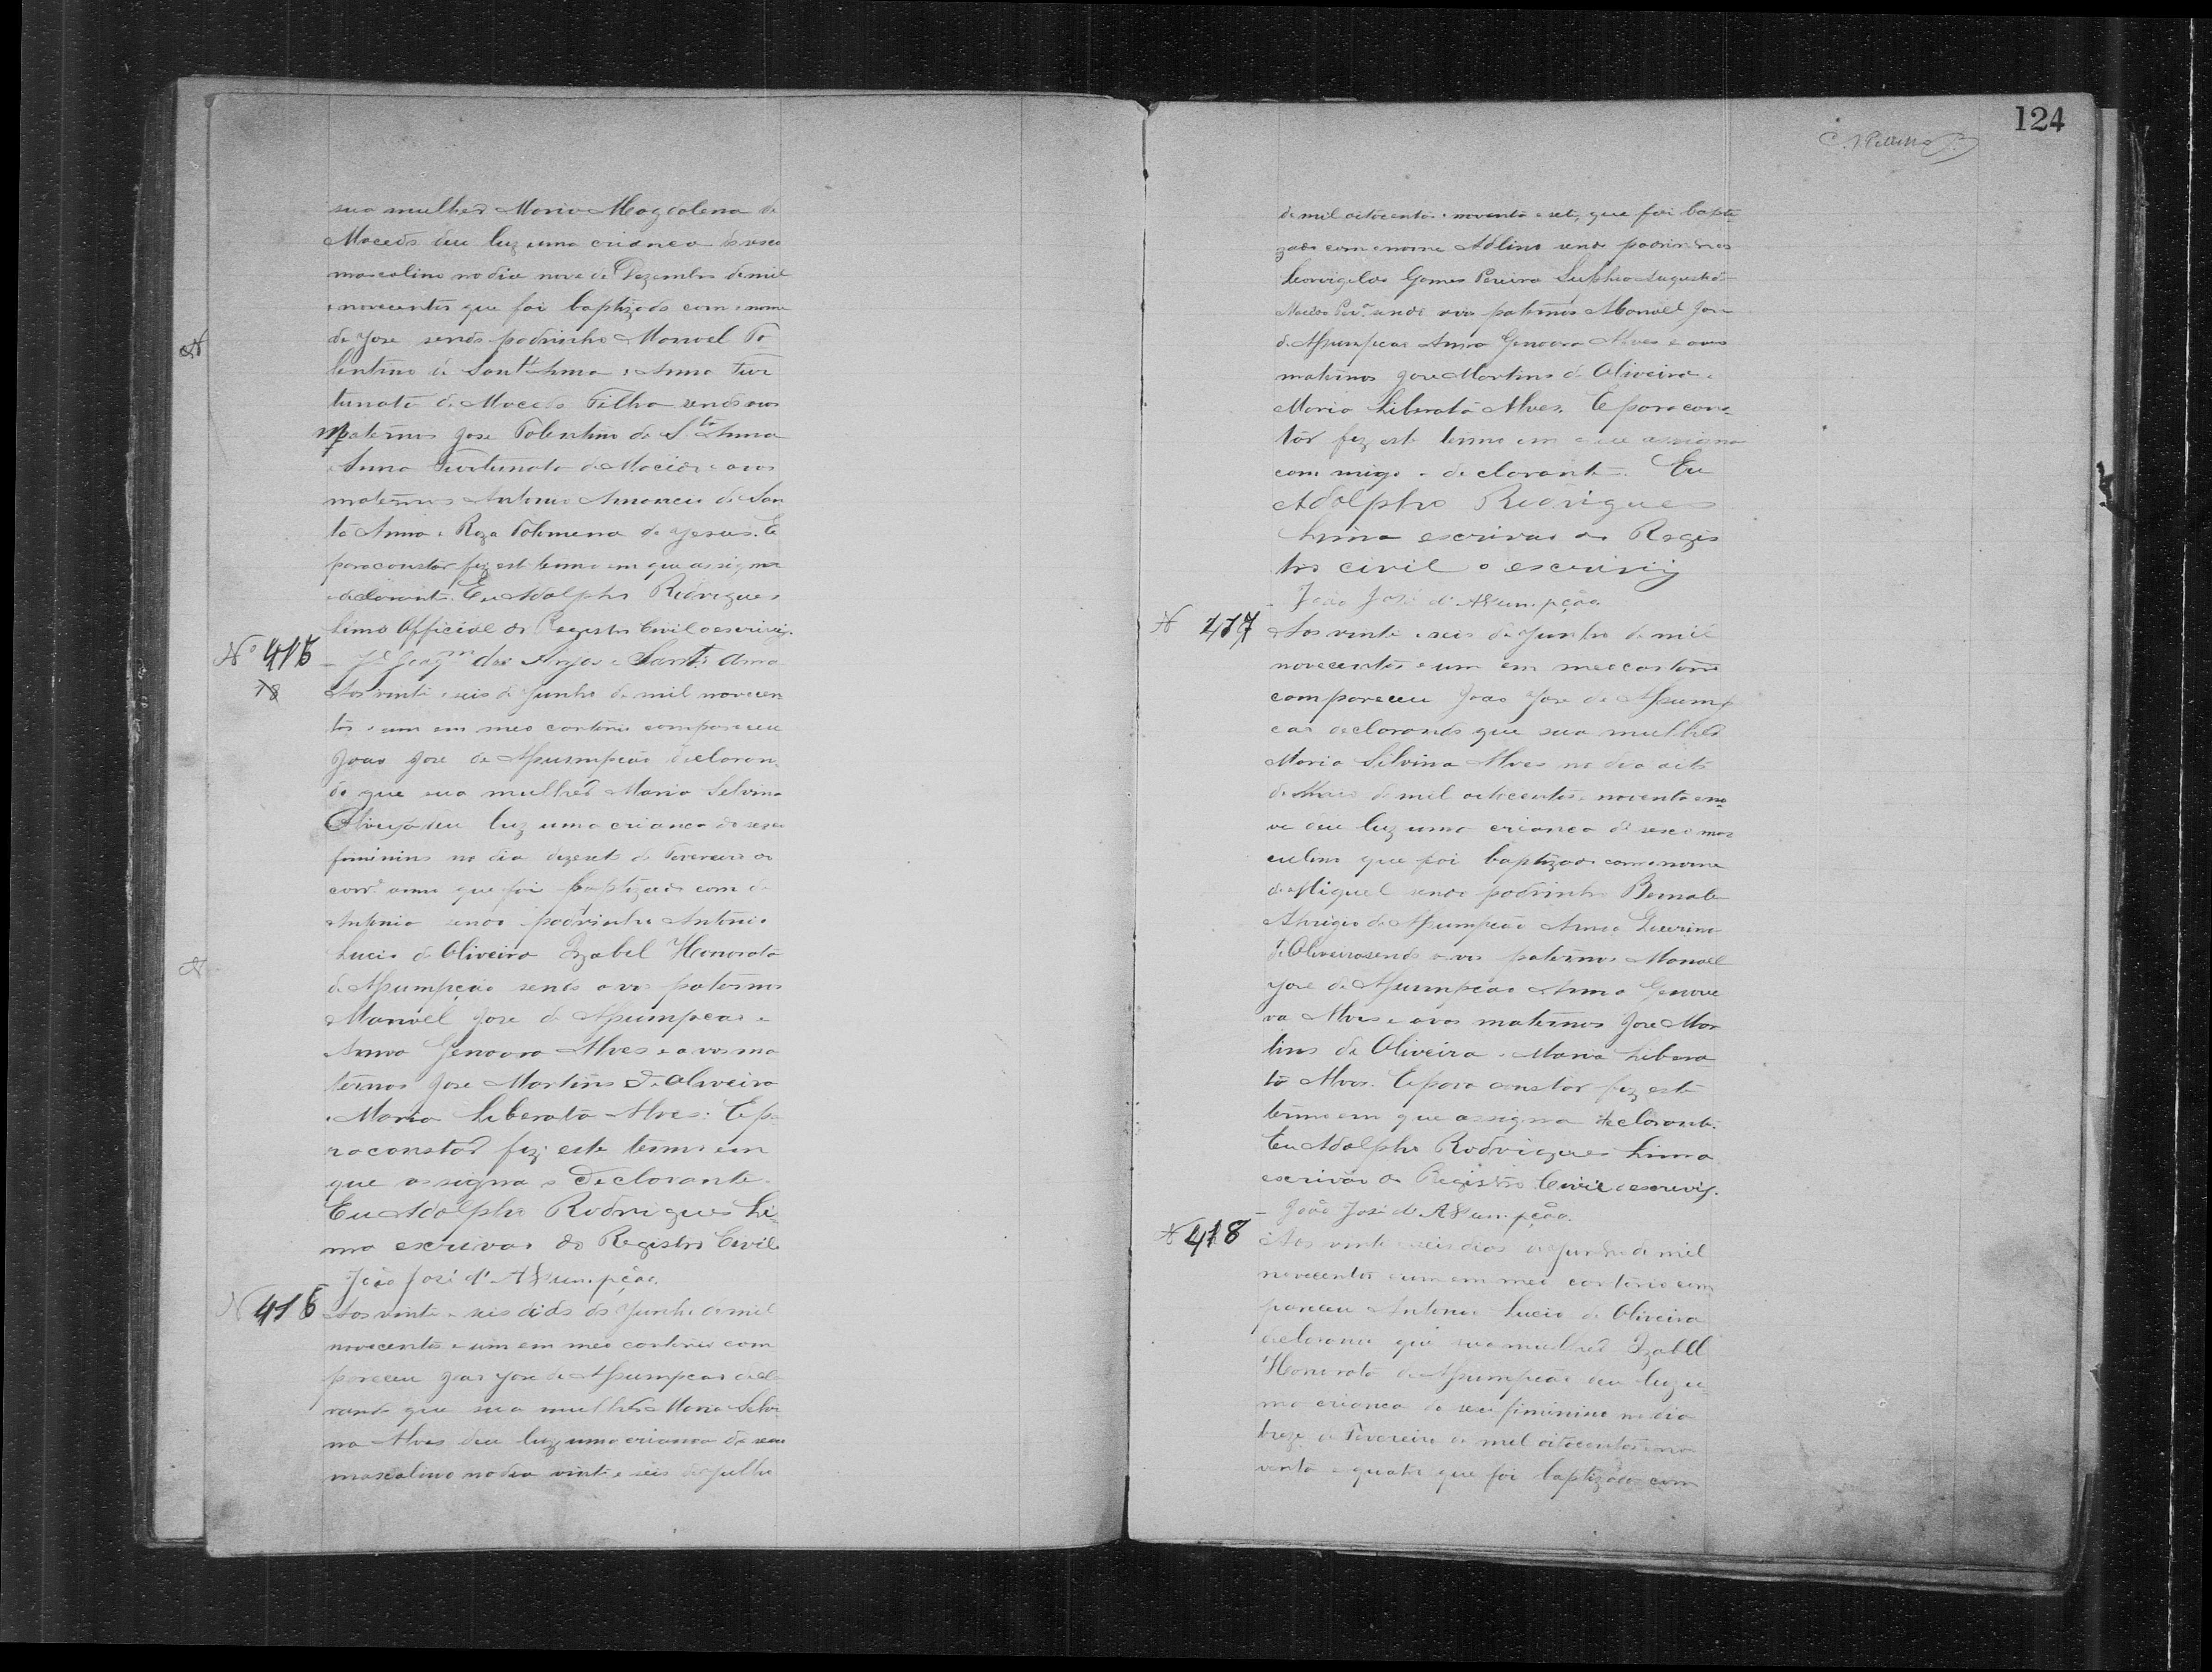 sua mulher Maria Magdalena de
Macedo deu luz uma crianca do sexo
masculino no dia nove de Dezembro de mil
novecentos que foi baptizado com o nome
de Jose sendo padrinho Manoel To
lentino de Sant'Anna e Anna Fur
tunata de Macedo Filha sendo avos
paternos Jose Tolentino de Sta Anna
e Anna Furtunata de Macedo e avos
maternos Antonio Amancio de San
ta Anna e Roza Folomena de Jesus. E
para constar fiz este termo em que assigna
o declarante. Eu Adolpho Rodrigues
Lima Official do Registro Civil o escrivy.
dos Anjos e Sant'Anna
No 415
18
Aos vinte e seis de Junho de mil novecen
tos e um em meo cartorio compareceu
Joao Jose de Assumpção declaran
do que sua mulher Maria Selvina
deu luz uma crianca do sexo
fiminino no dia dezesete de Fevereiro do
corre anno que foi baptizada com de
Antonia sendo padrinho Antonio
Lucio de Oliveira Izabel Honorata
de Assumpção sendo avos paternos
Manoel Jose de Assumpcao e
Anna Genoora Alves e avos ma
ternos Jose Martins de Oliveira
e Maria Liberata Alves. E pa
ra constar fiz este termo em
que assigna o Declarante.
Eu Adolpho Rodrigues Li
ma escrivao do Registro Civil
João José d'Assumpção.
N 416
Aos vinte e seis dids de Junho de mil
novecentos e um em meo cartorio com
pareceu Joao Jose de Assumpcao decla
rando que sua mulher Maria Selvi
na Alves deu luz uma crianca de sexo
masculino no dia vinte e seis de Julho
124
de mil oitocentos e noventa e sete, que foi bapti
zado com o nome Adlino sendo padrinhos
Leovigildo Gomes Pereira
sendo avos paternos Manoel Jose
de Assumpcao Anna Genoora Alves e avos
maternos Jose Martins de Oliveira e
Maria Liberata Alves. E para cons
tar fiz este termo em que assigna
com migo o declarante. Eu
Adolpho Rodrigues
Lima escrivao do Regis
tro civil o escriviy
João José d'Assumpção.
N 417
Aos vinte e seis de Junho de mil
novecentos e um em meo cartorio
compareceu Joao Jose de Assump
cao declarando que sua mulher
Maria Silvina Alves no dia oito
de Maio de mil oitocentos e noventa e no
ve deu luz uma crianca do sexo mas
culino que foi baptizado com o nome
de Miguel sendo padrinho
de Assumpcão Anna
de Oliveira sendo avos paternos Manoel
Jose de Assumpcao Anna Genove
va Alves e avos maternos Jose Mar
tins de Oliveira e Maria Libera
ta Alves. E para constar fiz este
termo em que assigna o declarante.
Eu Adolpho Rodrigues Lima
escrivão do Registro Civil o escrevy.
João José d'Assumpção.
N 418
Aos vinte e seis dias de Junho de mil
novecentos e um em meo cartorio com
pareceu Antonio Lucio de Oliveira
declarando que sua mulher Izabel
Honorata de Assumpcão deu luz u
ma crianca do sexo fiminino no dia
treze de Fevereiro de mil oitocentos e no
venta e quatro que foi baptizado com